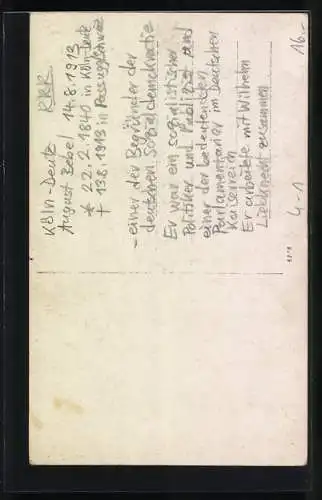 Köln-Deutz RRR
August Bebel 14.8.1913
* 22.2.1840 in Köln-Deutz
† 13.8.1913 in Passugg/Schweiz
- einer der Begründer der
deutschen Sozialdemokratie
Er war ein sozialistischer
Politiker und Publizist und
einer der bedeutendsten
Parlamentarier im Deutschen
Kaiserreich
Er arbeitete mit Wilhelm
Liebknecht zusammen
4-1
16.-